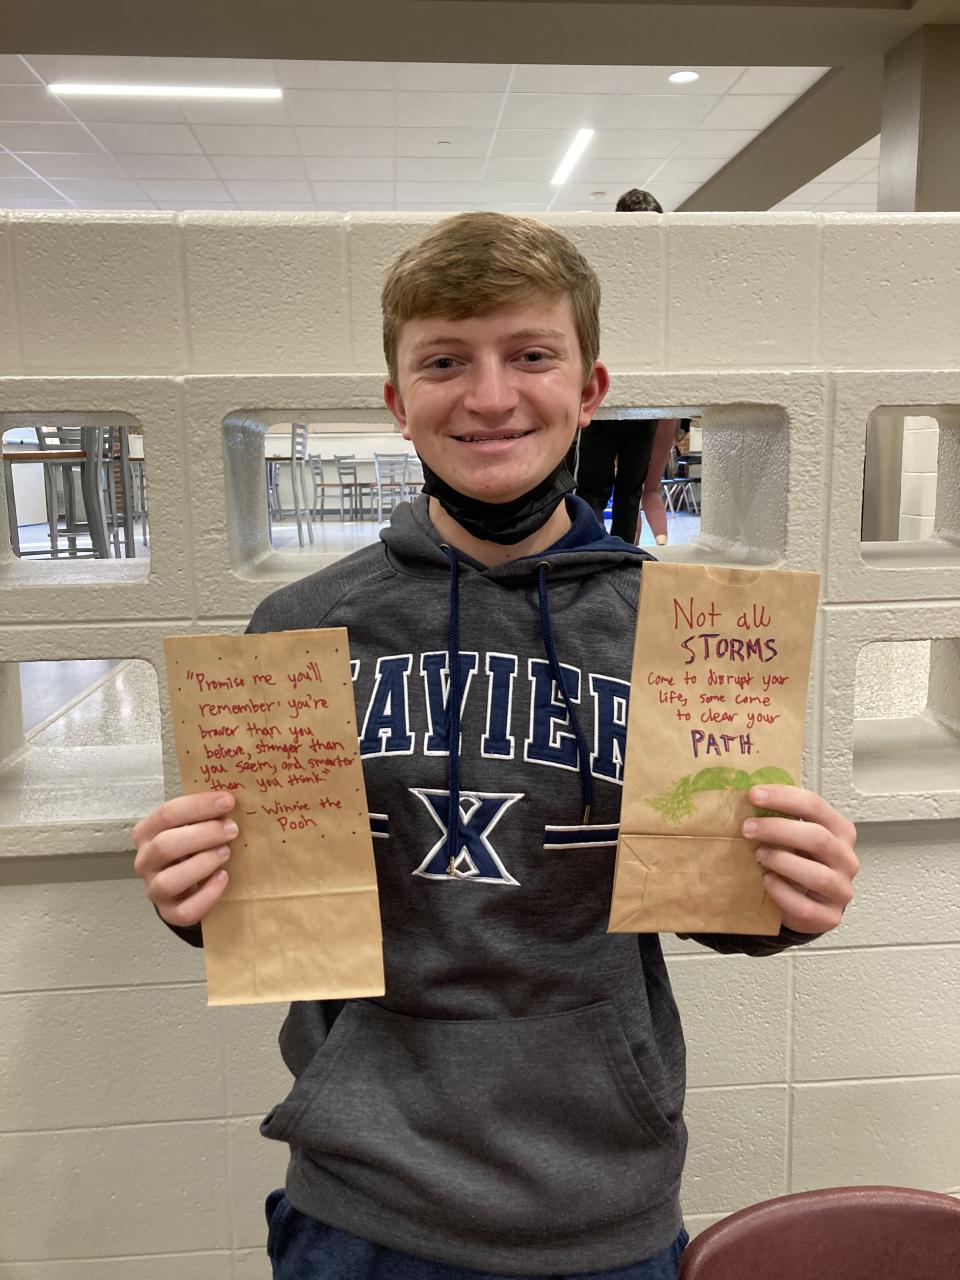 "Promise me you'll
remember: you're
braver than you
believe, stronger than
you seem, and smarter
than you think."
- Winnie the
Pooh
XAVIER
X
Not all
STORMS
Come to disrupt your
life, some come
to clear your
PATH.